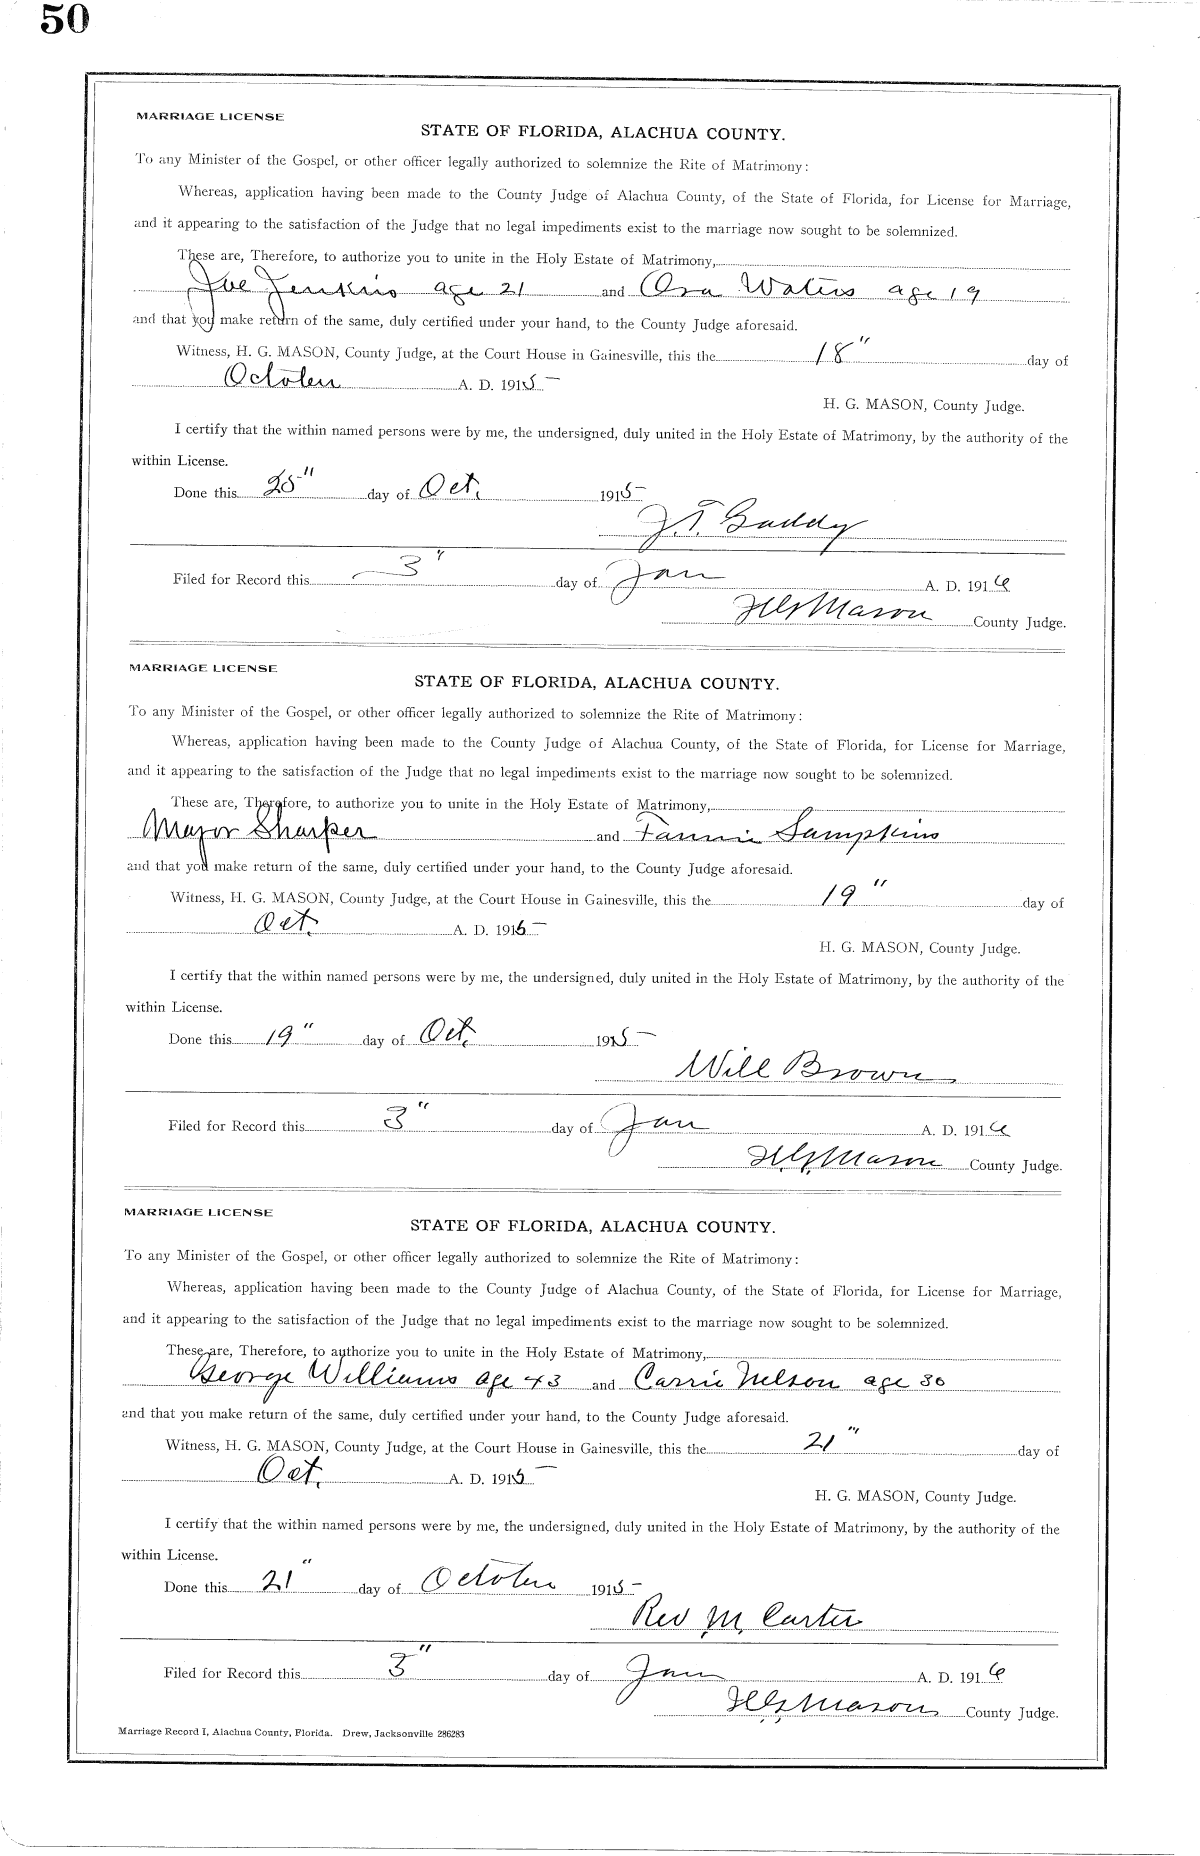 50
MARRIAGE LICENSE
STATE OF FLORIDA, ALACHUA COUNTY.
To any Minister of the Gospel, or other officer legally authorized to solemnize the Rite of Matrimony:
Whereas, application having been made to the County Judge of Alachua County, of the State of Florida, for License for Marriage,
and it appearing to the satisfaction of the Judge that no legal impediments exist to the marriage now sought to be solemnized.
These are, Therefore, to authorize you to unite in the Holy Estate of Matrimony,
Joe Jenkins age 21 and Ora Waters age 19
and that you make return of the same, duly certified under your hand, to the County Judge aforesaid.
Witness, H. G. MASON, County Judge, at the Court House in Gainesville, this the 18" day of
October A. D. 1915
H. G. MASON, County Judge.
I certify that the within named persons were by me, the undersigned, duly united in the Holy Estate of Matrimony, by the authority of the
within License.
Done this 25" day of Oct. 1915
J. T. Gaddy
Filed for Record this 3" day of Jan A. D. 1916
H G Mason County Judge.
MARRIAGE LICENSE
STATE OF FLORIDA, ALACHUA COUNTY.
To any Minister of the Gospel, or other officer legally authorized to solemnize the Rite of Matrimony:
Whereas, application having been made to the County Judge of Alachua County, of the State of Florida, for License for Marriage,
and it appearing to the satisfaction of the Judge that no legal impediments exist to the marriage now sought to be solemnized.
These are, Therefore, to authorize you to unite in the Holy Estate of Matrimony,
Major Sharper and Fannie Sampkins
and that you make return of the same, duly certified under your hand, to the County Judge aforesaid.
Witness, H. G. MASON, County Judge, at the Court House in Gainesville, this the 19" day of
Oct. A. D. 1915
H. G. MASON, County Judge.
I certify that the within named persons were by me, the undersigned, duly united in the Holy Estate of Matrimony, by the authority of the
within License.
Done this 19" day of Oct. 1915
Will Brown
Filed for Record this 3" day of Jan A. D. 1916
H. G. Mason County Judge.
MARRIAGE LICENSE
STATE OF FLORIDA, ALACHUA COUNTY.
To any Minister of the Gospel, or other officer legally authorized to solemnize the Rite of Matrimony:
Whereas, application having been made to the County Judge of Alachua County, of the State of Florida, for License for Marriage,
and it appearing to the satisfaction of the Judge that no legal impediments exist to the marriage now sought to be solemnized.
These are, Therefore, to authorize you to unite in the Holy Estate of Matrimony,
George Williams age 43 and Carrie Nelson age 30
and that you make return of the same, duly certified under your hand, to the County Judge aforesaid.
Witness, H. G. MASON, County Judge, at the Court House in Gainesville, this the 21" day of
Oct. A. D. 1915
H. G. MASON, County Judge.
I certify that the within named persons were by me, the undersigned, duly united in the Holy Estate of Matrimony, by the authority of the
within License.
Done this 21" day of October 1915
Rev M. Carter
Filed for Record this 3" day of Jan A. D. 1916
H. G. Mason County Judge.
Marriage Record I, Alachua County, Florida. Drew, Jacksonville 286283